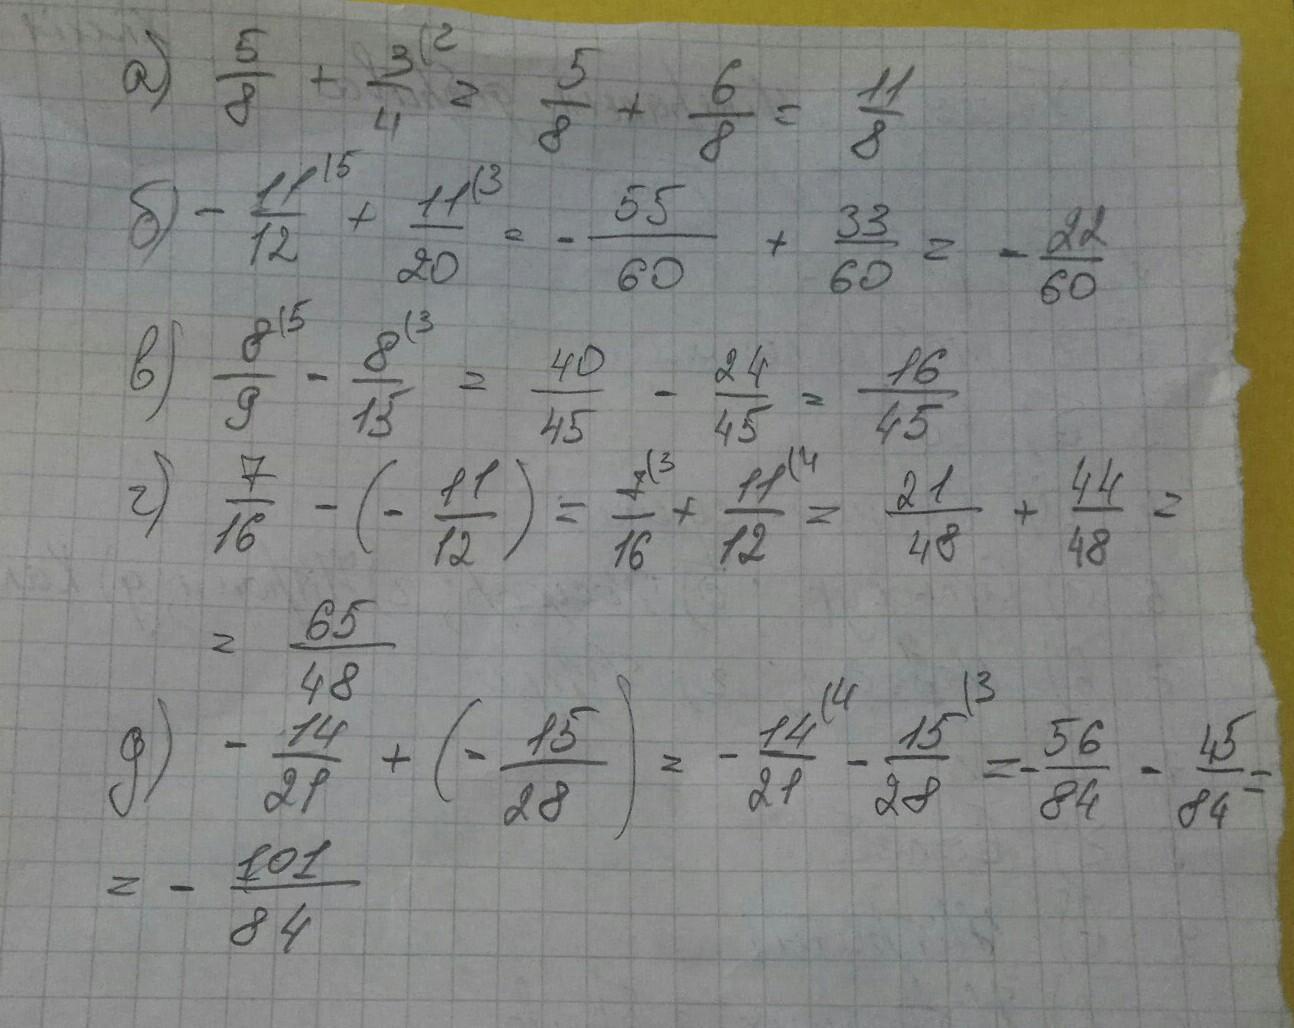 а) 5/8 + 3/4 (2 = 5/8 + 6/8 = 11/8
б) - 11/12 (5 + 11/20 (3 = - 55/60 + 33/60 = - 22/60
в) 8/9 (5 - 8/15 (3 = 40/45 - 24/45 = 16/45
г) 7/16 - (- 11/12) = 7/16 (3 + 11/12 (4 = 21/48 + 44/48 =
= 65/48
д) - 14/21 + (- 15/28) = - 14/21 (4 - 15/28 (3 = - 56/84 - 45/84 =
= - 101/84